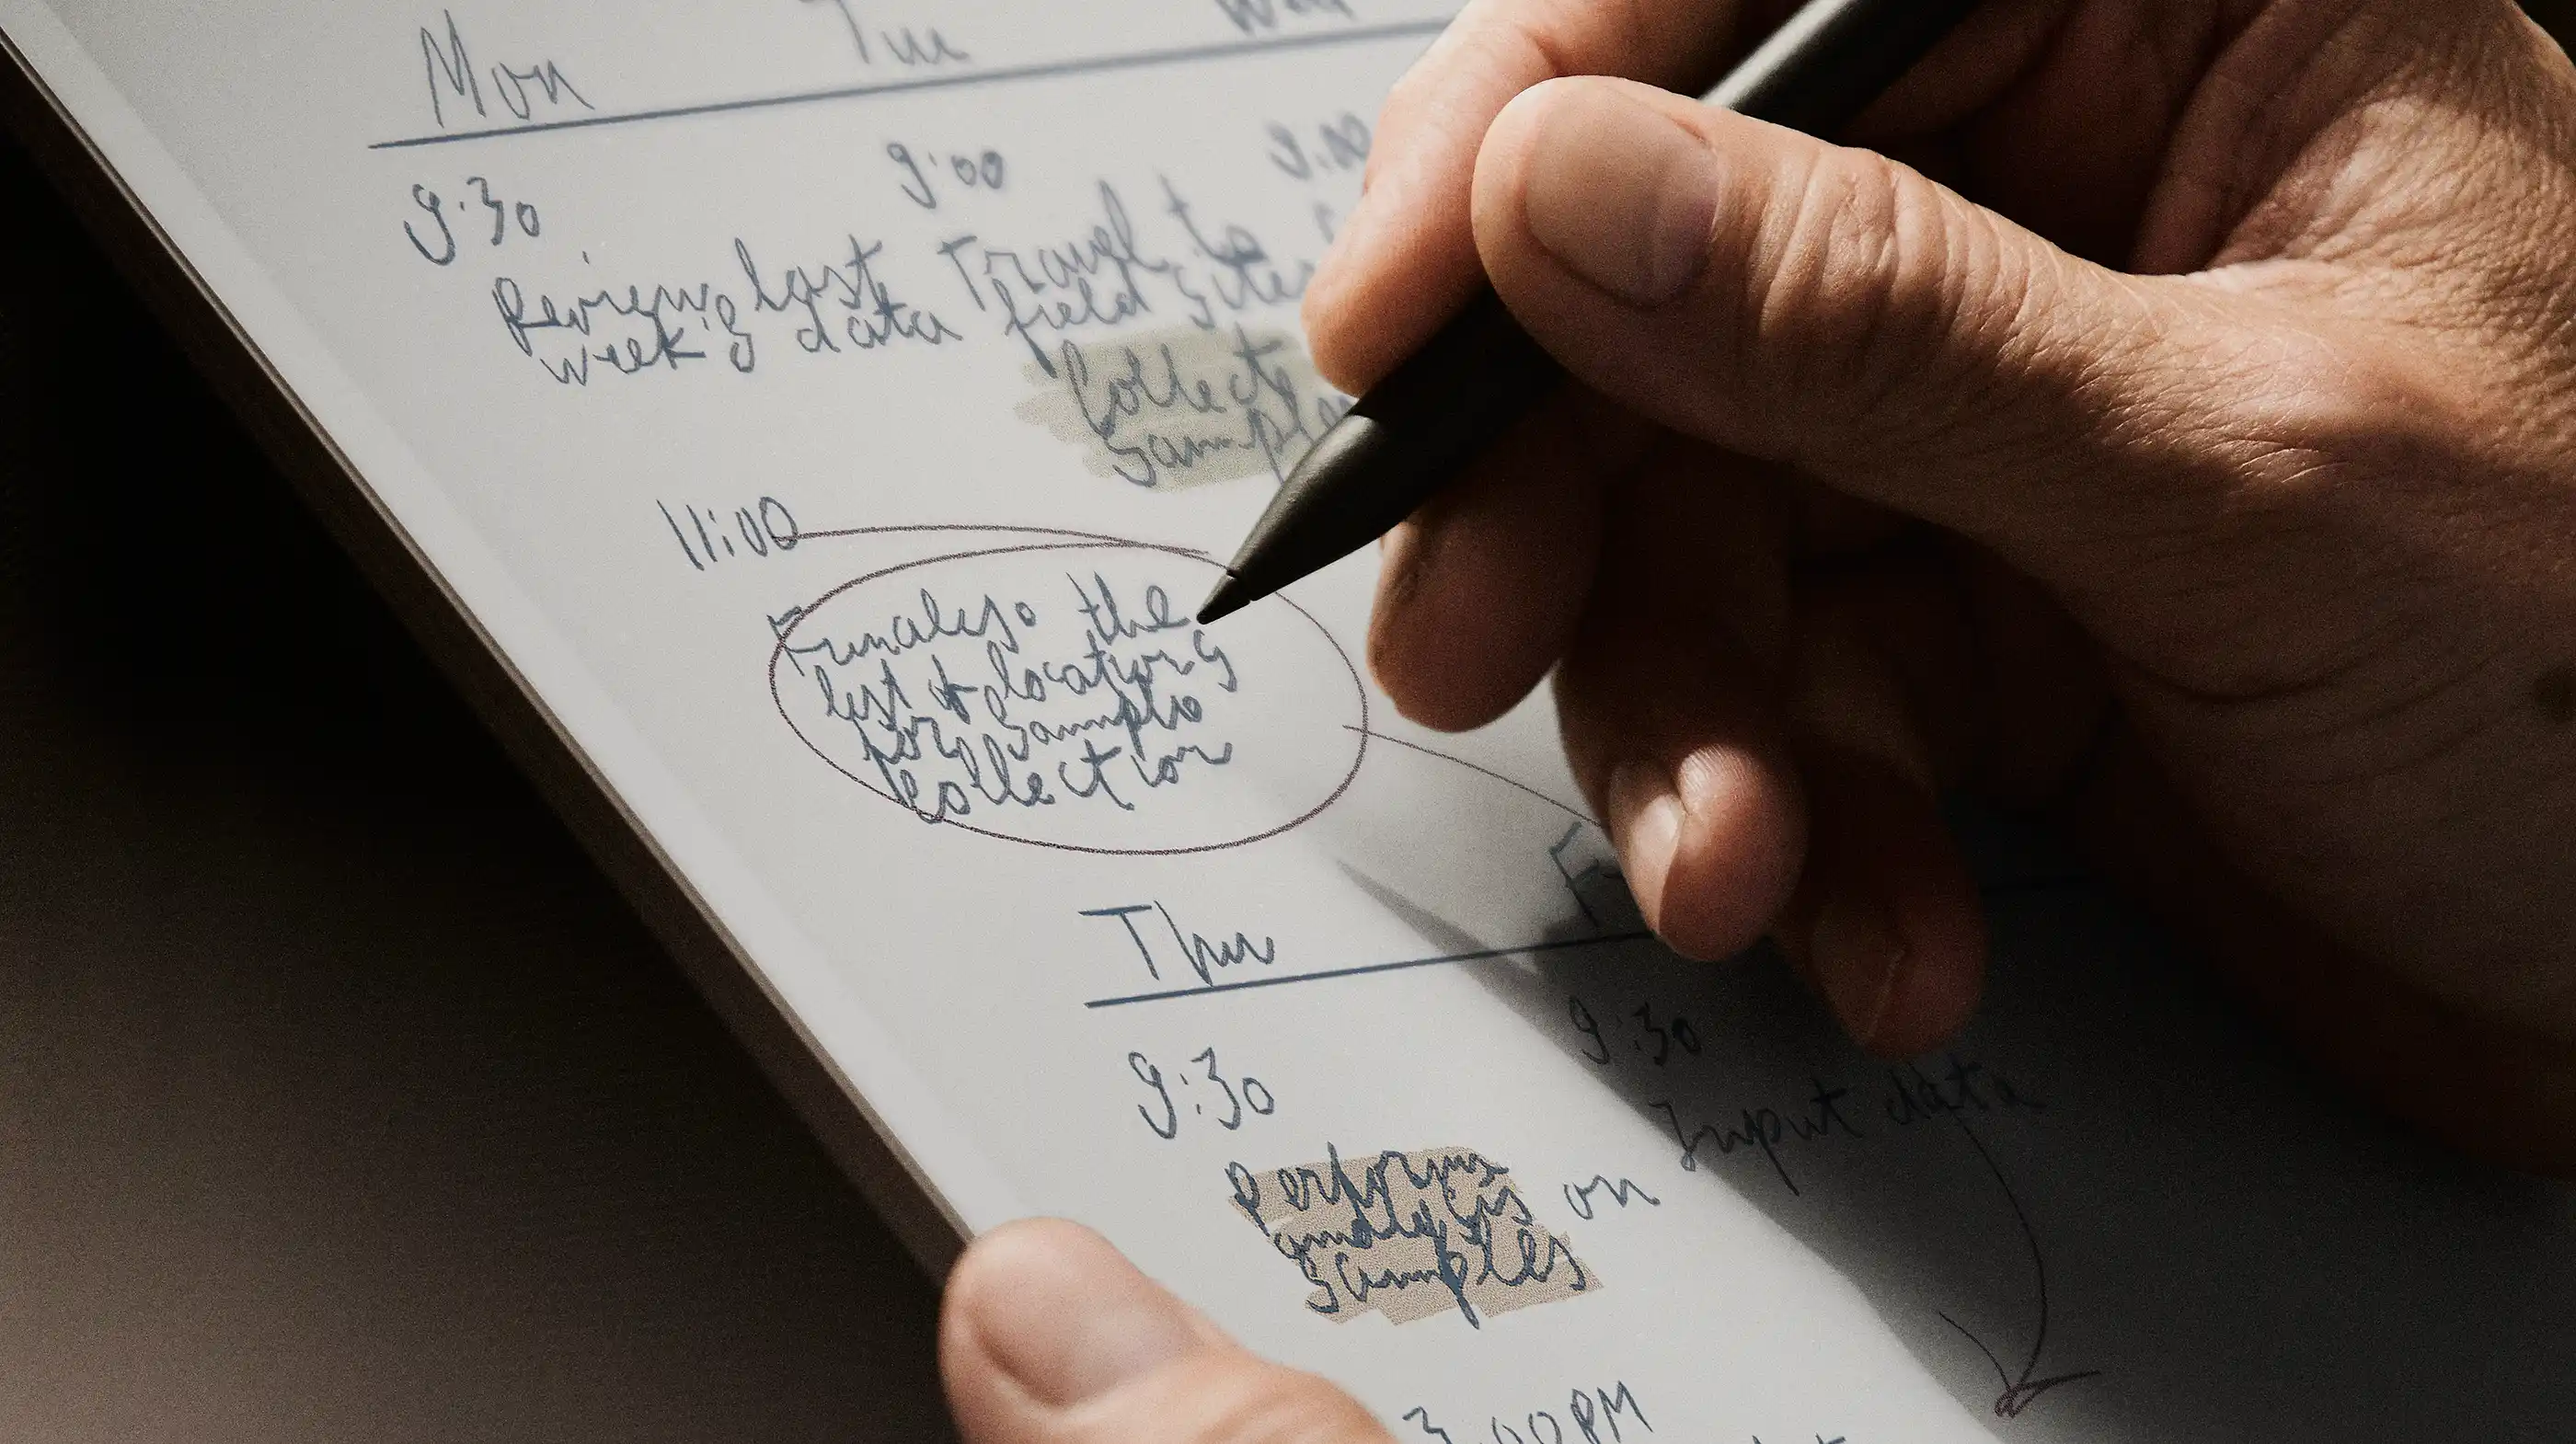 Mon
Tue
Wed
9:30
Review last
week's data
11:00
Finalise the
list of locations
for sample
collection
9:00
Travel to
field sites
Collect
samples
Thu
9:30
Perform
analysis on
samples
3:00PM
9:30
Input data